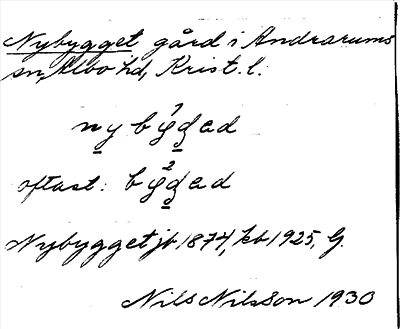 Nybygget gård i Andrarums
sn, Albo hd, Krist. l.
nybygad
oftast: bygad
Nybygget jb 1874, kb 1925, G.
Nils Nilsson 1930